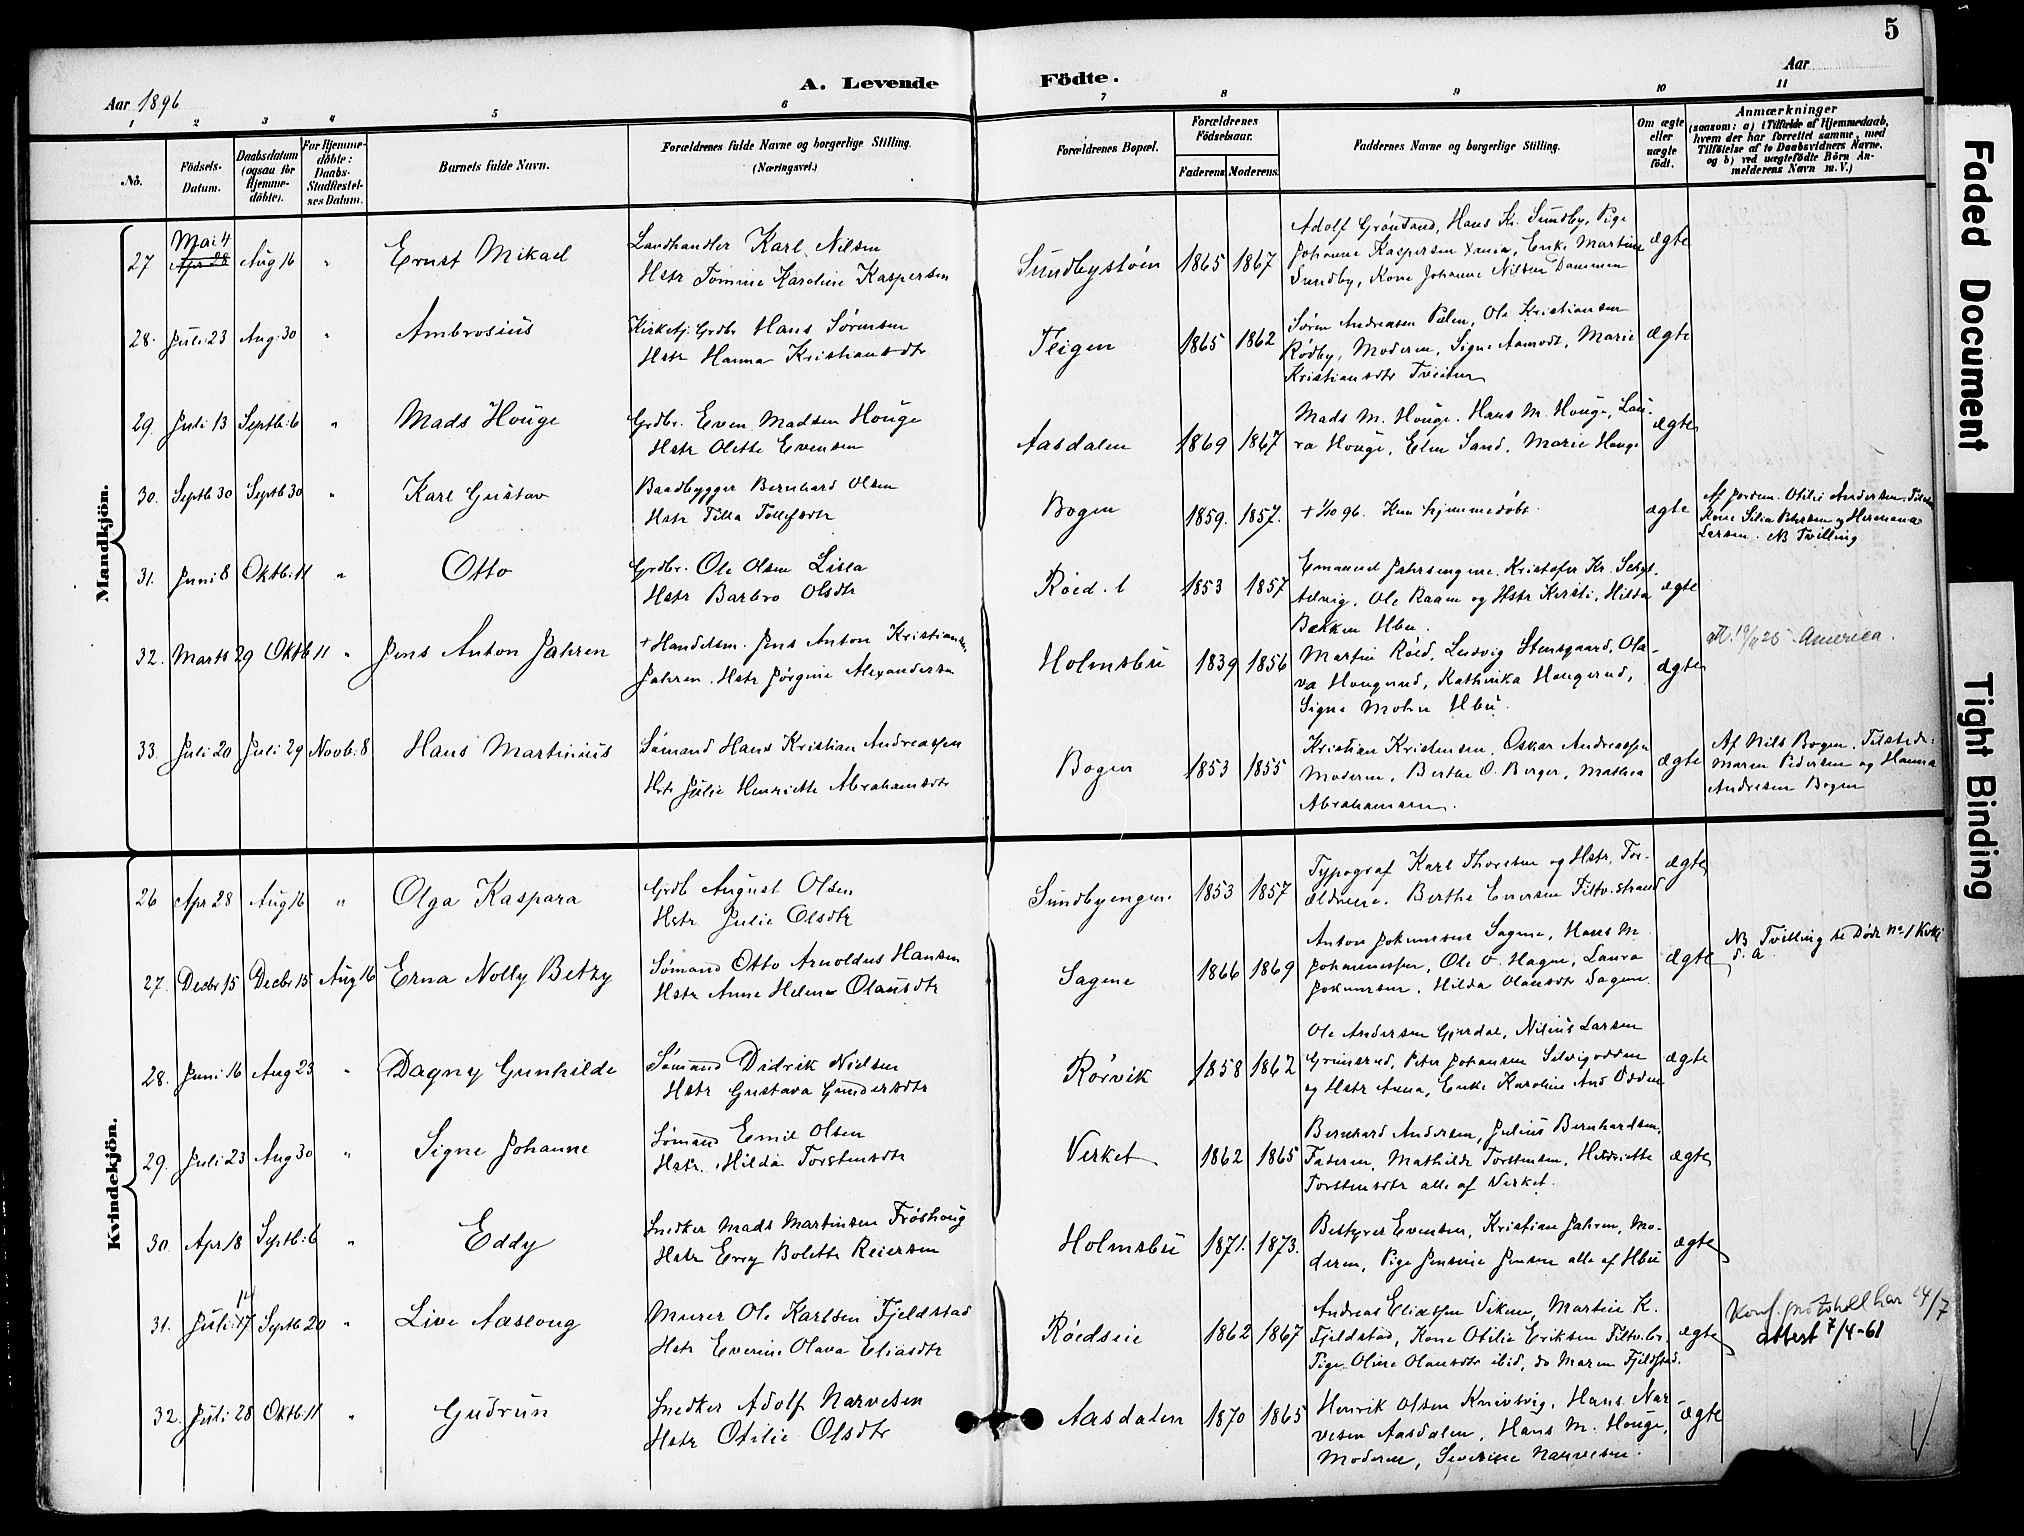 5
A. Levende Födte.
Aar 1896
Aar
1 2 3 4 5 6 7 8 9 10 11
No.
Födsels-Datum.
Daabsdatum (ogsaa for Hjemmedöbte).
For Hjemmedöbte: Daabs-Stadfæstelses Datum.
Barnets fulde Navn.
Forældrenes fulde Navne og borgerlige Stilling.
(Næringsvei.)
Forældrenes Bopæl.
Forældrenes Födselsaar.
Faderens Moderens.
Faddernes Navne og borgerlige Stilling.
Om ægte eller uægte født.
Anmærkninger
(saasom: a) i Tilfælde af Hjemmedaab, hvem der har forrettet samme, med Tilföielse af to Daabsvidners Navne. og b) ved uægtefödte Börn Anmelderens Navn m. V.)
Mandkjön.
27 Mai 4 Apr 28 Aug 16 " Ernst Mikael
Landhandler Karl Nilsen
Hstr Tomine Karoline Kaspersen
Sundbystøen 1865 1867
Adolf Grønsand, Hans Kr. Sundby, Pige
Johanne Kaspersen Xnia, Enke Martine
Sundby, Kone Johanne Nilsen Dammen
ægte
28. Juli 23 Aug: 30 " Ambrosius
Kirketj. Grdbr Hans Sørensen
Hstr Hanna Kristiansdtr
Teigen 1865 1862
Søren Andreasen Pælen, Ole Kristiansen
Rødby, Moderen, Signe Aamodt, Marie
Kristiansdtr Tveiten
ægte
29. Juli 13 Septb: 6 " Mads Houge
Grdbr. Even Madsen Houge
Hstr Olette Evensen
Aasdalen 1869 1867
Mads M. Houge. Hans M. Houge, Lau-
ra Houge, Elen Sand, Marie Houge
ægte
30. Septb 30 Septb 30 " Karl Gustav
Baadbygger Bernhard Olsen
Hstr Tilla Tollefsdtr
Bogen 1859. 1857.
+ 1/10 96. Kun hjemmedøbt.
ægte
Af Jordm. Otilie Andersen. Tilstede
Kone Silia Petersen og Hermana
Larsen. NB Tvilling
31. Juni 8 Oktb: 11 " Otto
Grdbr. Ole Olsen Lilla
Hstr Barbro Olsdtr
Røed. l 1853 1857
Emanuel Jahrsengene. Kristofer Kr. Selvg.
Selvig, Ole Raaen og Hstr Kirsti, Hilda
Bakken Hbu.
ægte
32. Marts 29 Oktb 11 " Jens Anton Jahren
+ Handelsm. Jens Anton Kristiansen
Jahren. Hstr Jørgine Alexandersen
Holmsbu 1839 1856
Martin Røed, Ludvig Stensgaard, Ola-
va Hougerud, Kathinka Hougerud,
Signe Mohn Hbu.
ægte
25 America.
33. Juli 20 Juli 29 Novb: 8 Hans Martinius
Sømand Hans Kristian Andreassen
Hstr Julie Henriette Abrahamsdtr
Bogen 1853 1855
Kristian Kristensen, Oskar Andreassen
Moderen, Berthe O. Berger, Mathea
Abrahamsen.
ægte
Af Nils Bogen. Tilstede:
Maren Pedersen og Hanna
Andresen Bogen
Kvindekjön.
26 Apr 28 Aug 16 " Olga Kaspara
Grdb August Olsen
Hstr Julie Olsdtr
Sundbyengene 1853 1857
Typograf Karl Thorsen og Hstr, For-
ældrene. Berthe Evensen Tiltv.strand
ægte
27. Decbr 15 Decbr 15 Aug 16 Erna Nolly Betzy
Sømand Otto Arnoldus Hansen
Hstr Anne Helene Olausdtr
Sagene 1866 1869
Anton Jokumsen Sagene, Hans M.
Johannessen, Ole O. Hagen, Laura
Jokumsen, Hilda Olausdtr Sagene
ægte
NB Tvilling se Døde No 1 Kvkj
d. A.
28. Juni 16 Aug 23 " Dagny Gunhilde
Sømand Didrik Nielsen
Hstr Gustava Gundersdtr
Rørvik 1858 1862
Ole Andersen Gjerdal, Nilius Larsen
Grimsrud, Peter Johansen Selvigodden
og Hstr Anna, Enke Karoline And Odden
ægte
29. Juli 23 Aug 30 " Signe Johanne
Sømand Emil Olsen
Hstr. Hilda Torstensdtr
Verket 1862 1865
Bernhard Andersen, Julius Bernhardsen,
Faderen, Mathilde Torstensen, Henriette
Torstensdtr alle af Verket.
ægte
30. Apr 18 Septb: 6 " Eddy
Snedker Mads Martinsen Frøshoug
Hstr Evey Bolette Reiersen
Holmsbu 1871. 1873.
Bestyrer Evensen, Kristian Jahren, Mo-
deren, Pige Jensine Jensen alle af Hbu
ægte
31. Juli 17 14 Septb 20 " Live Aaslaug
Murer Ole Karlsen Fjeldstad
Hstr Everine Olava Eliasdtr
Røedseie 1862 1867
Andreas Eliassen Viken, Martin K.
Fjeldstad, Kone Otilie Eriksen Tiltv.br.
Pige Oline Olausdtr ibid, do Maren Fjeldstad.
ægte
Konf. protokoll har 14/7
attest 7/4-61
32. Juli 28 Oktb: 11 " Gudrun
Snedker Adolf Narvesen
Hstr Otilie Olsdtr
Aasdalen 1870 1865
Henrik Olsen Knivsvig, Hans Nar-
vesen Aasdalen, Hans M. Houge,
Moderen, Severine Narvesen.
ægte
Faded Document
Tight Binding